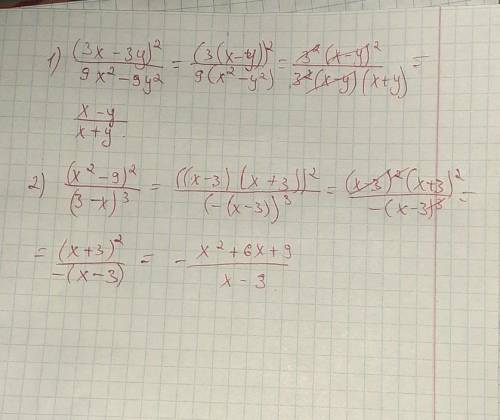 1) (3x - 3y)² / 9x² - 9y² = (3(x-y))² / 9(x² - y²) = 3²(x-y)² / 3²(x-y)(x+y) =
x-y / x+y.
2) (x² - 9)² / (3-x)³ = ((x-3)(x+3))² / (-(x-3))³ = (x-3)²(x+3)² / -(x-3)³ =
= (x+3)² / -(x-3) = - x² + 6x + 9 / x - 3